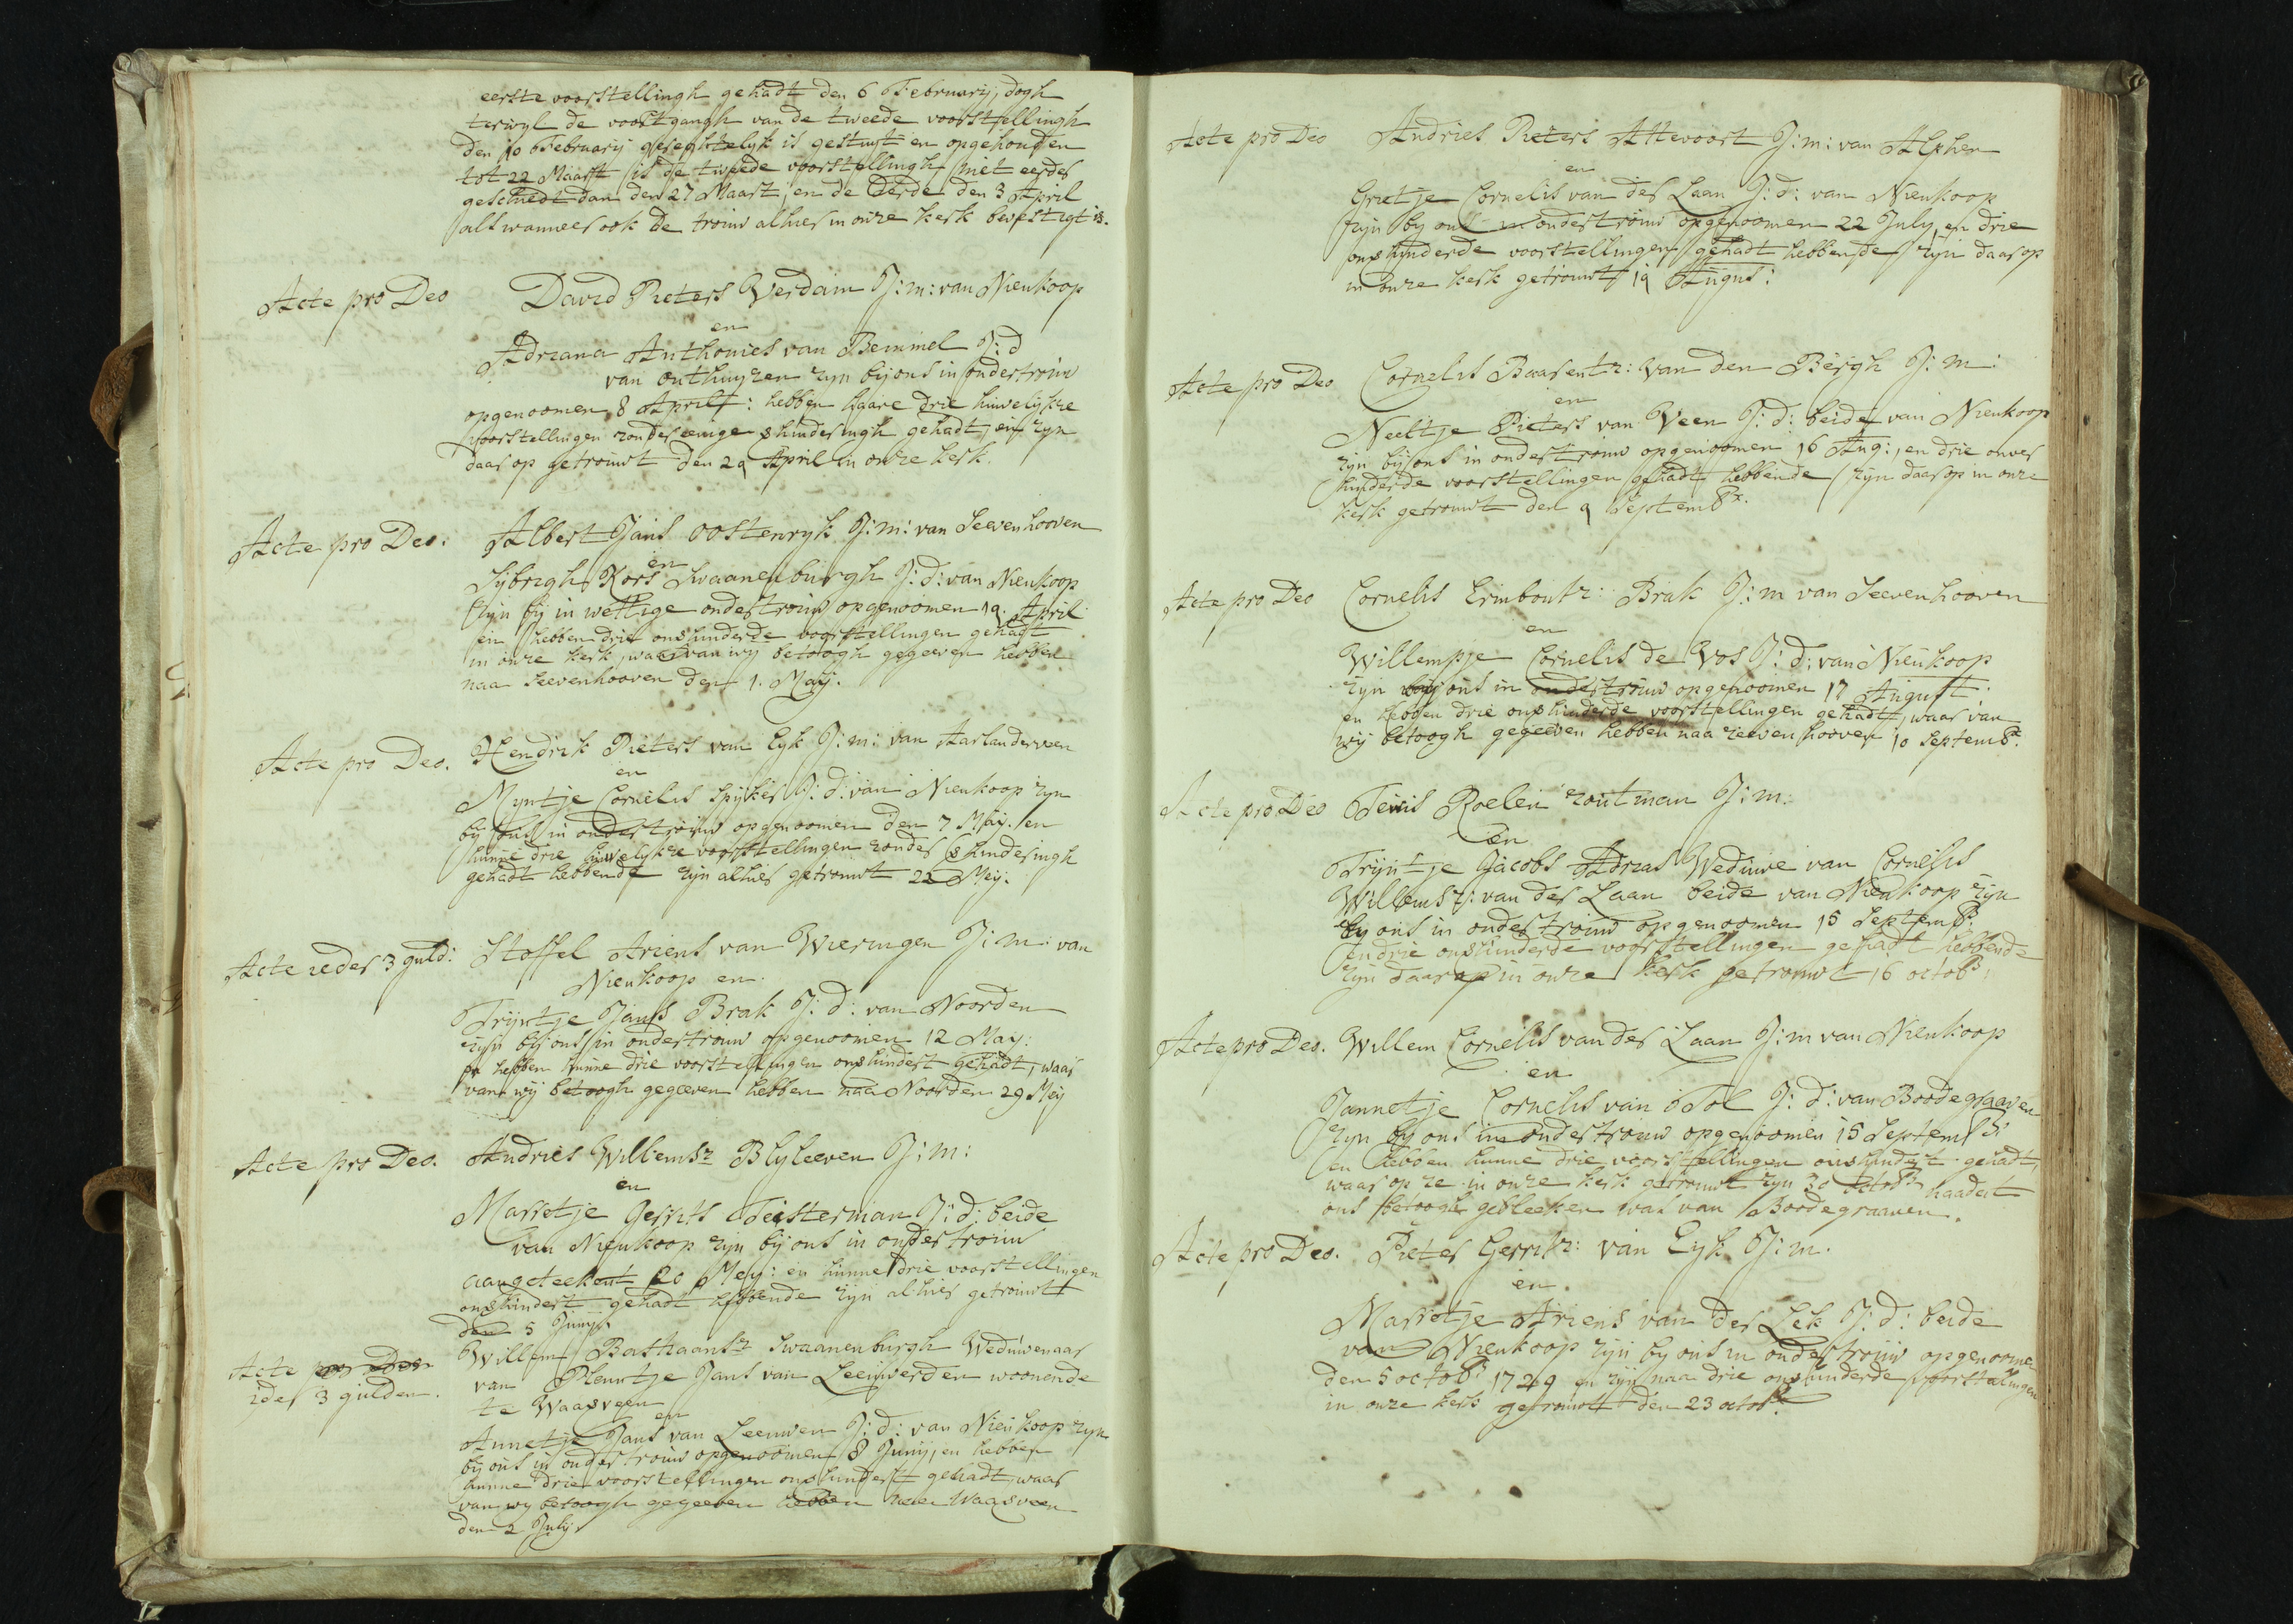 eerste voorstellingh gehadt den 6 February, dogh
terwyl de voortgangh van de tweede voorstellingh
den 10 February geregtelyk is gestuyt en opgehouden
tot 22 Maart is de tweede voorstellingh niet eerder
geschiedt dan den 27 Maart, en de derde den 3 April
als wanneer ook de trouw alhier in onze kerk bevestigt is.
Acte pro Deo
David Pieters Verdam J: m: van Nieukoop
en
Adriana Anthonies van Bemmel J: d
van outhuyzen zyn by ons in ondertrouw
opgenoomen 8 April: hebben haare drie huwelykze
voorstellingen zonder eenige vhinderingh gehadt, en zyn
daar op getrouwt den 24 April in onze kerk.
Acte pro Deo:
Albert Jans oostenryk J: m: van Seevenhooven
en
Sybrigh Kors Swaanenburgh J: d: van Nieukoop
zyn by in wettige ondertrouw opgenoomen 19. April
en hebben drie onvhinderde voorstellingen gehadt
in onze kerk, waar van wy betoogh gegeeven hebben
naa Seevenhooven den 1. May.
Acte pro Deo.
Hendrik Pieters van Eyk J: m: van Aarlanderveen
en
Myntje Cornelis Spyker J: d: van Nieukoop zyn
by ons in ondertrouw opgenoomen den 7 May. en
hunne drie huwelykze voorstellingen zonder vhinderingh
gehadt hebbende zyn alhier getrouwt 22 Mey.
Acte ieder 3 guld:
Stoffel Ariens van Wieringen J: m: van
Nieukoop en
Tryntje Jans Brak J: d: van Noorden
zyn by ons in ondertrouw opgenoomen 12 May:
en hebben hunne drie voorstellingen onvhindert gehadt, waar
van wy betoogh gegeeven hebben naa Noorden 29 Mey
Acte pro Deo.
Andries Willemsz Blyleeven J: m:
en
Marretje Gerrits Teisterman J: d: beide
van Nieukoop zyn by ons in ondertrouw
aangeteekent 20 Mey: en hunne drie voorstellingen
onvhindert gehadt hebbende zyn alhier getrouwt
den 5 Juny.
Acte pro Deo
ider 3 gulden.
Willem Bastiaansz Swaanenburgh Weduwenaar
van Pleuntje Jans van Leeuwerden woonende
te Waasveen
en
Annetje Jans van Leeuwen J: d: van Nieukoop zyn
by ons in ondertrouw opgenoomen 8 Juny, en hebben
hunne drie voorstellingen onvhindert gehadt, waar
van wy betoogh gegeeven hebben naa Waasveen
den 2 July.
Acte pro Deo
Andries Pieters Attevoort J: m: van Alphen
en
Grietje Cornelis van der Laan J: d: van Nieukoop
zyn by ons in ondertrouw opgenoomen 22 July, en drie
onvhinderde voorstellingen gehadt hebbende zyn daar op
in onze kerk getrouwt 14 August:
Acte pro Deo
Cornelis Baarentz: van den Bergh J: m:
en
Neeltje Pieters van Veen J: d: beide van Nieukoop
zyn by ons in ondertrouw opgenoomen 16 Aug:, en drie onver
hinderde voorstellingen gehadt hebbende zyn daar op in onze
kerk getrouwt den 4 Septembr.
Acte pro Deo
Cornelis Ermboutz: Brak J: m van Seevenhooven
en
Willempje Cornelis de Vos J: d: van Nieukoop
zyn by ons in ondertrouw opgenoomen 17 August:
en hebben drie onvhinderde voorstellingen gehadt, waar van
wy betoogh gegeeven hebben naa zeevenhooven 10 Septembr.
Acte pro Deo
Teunis Roelen zoutman J: m:
en
Tryntje Jacobs Adreas Weduwe van Cornelis
Willemsz: van der Laan beide van Nieukoop zyn
by ons in ondertrouw opgenoomen 15 Septembr
en drie onvhinderde voorstellingen gehadt hebbende
zyn daar op in onze kerk getrouwt 16 octobr.
Acte pro Deo.
Willem Cornelis van der Laan J: m van Nieukoop
en
Jannetje Cornelis van Tol J: d: van Boodegraaven
zyn by ons in ondertrouw opgenoomen 15 Septembr
en hebben hunne drie voorstellingen onvhindert gehadt,
waar op ze in onze kerk getrouwt zyn 30 octobr naadat
ons betoogh gebleeken was van Boodegraaven.
Acte pro Deo.
Pieter Gerritz: van Eyk J: m.
en
Marretje Ariens van der Lek J: d: beide
van Nieukoop zyn by ons in ondertrouw opgenoomen
den 5 octobr 1729 en zyn naa drie onvhinderde voorstellingen
in onze kerk getrouwt den 23 octobr